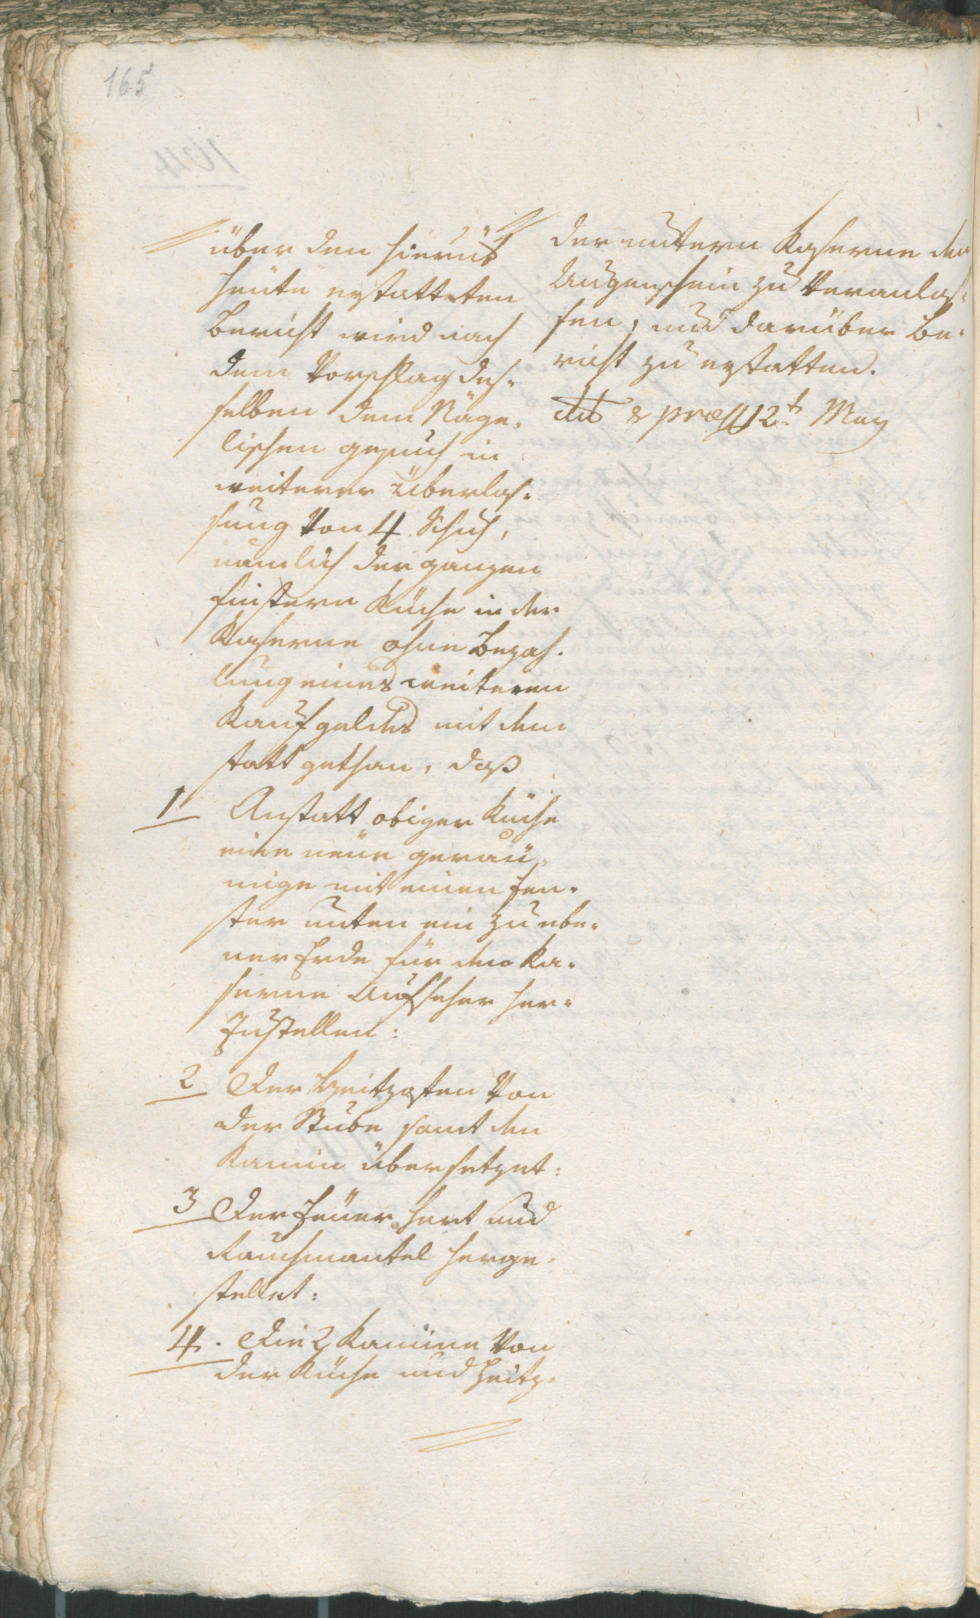 165
über den hierüb
heute erstatteten
Bericht wird nach
dem Vorschlag des-
selben dem Näge-
lischen gesuch in
weiterer Überlas-
sung von 4 Schuh,
nämlich der ganzen
finstern Küche in der
Kaserne ohne Bezah-
lung eines weiteren
Kaufgeldes mit dem
statt gethan, daß
1 Anstatt obiger Küche
eine neüe geraü-
mige mit einen Fen-
ster unten ein zu ebe-
ner Erde für den Ka-
serne Aufseher her-
zustellen:
2 Der Heitzosten von
der Stube samt den
Kamin übersetzet:
3 Der Feüer Hert und
Rauchmantel herge-
stellet:
4. Die 2 Kamine von
der Küche und Heitz-
der untern Kaserne den
Augenschein zu veranlas-
sen, und darüber be-
richt zu erstatten.
dto & præs 12t May